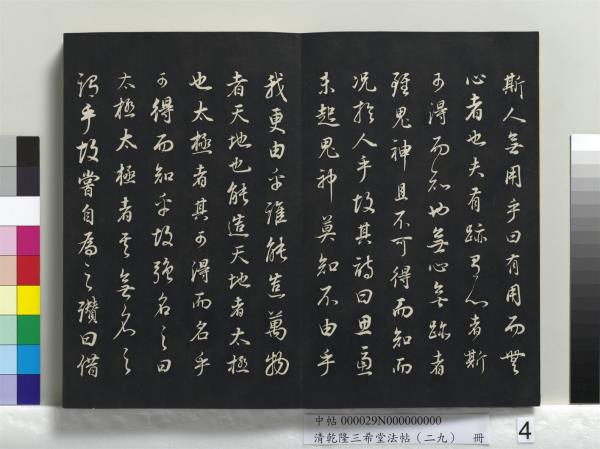 斯人無用乎曰有用而無
心者也夫有跡有心者斯
可得而知也無心無跡者
雖鬼神且不可得而知而
況於人乎故其詩曰思慮
未起鬼神莫知不由乎
我更由乎誰能造萬物
者天地也能造天地者太極
也太極者其可得而名乎
可得而知乎故強名之曰
太極太極者其無名之
謂乎故嘗自為之讚曰借
中帖 000029N000000000
清乾隆三希堂法帖（二九） 冊
4